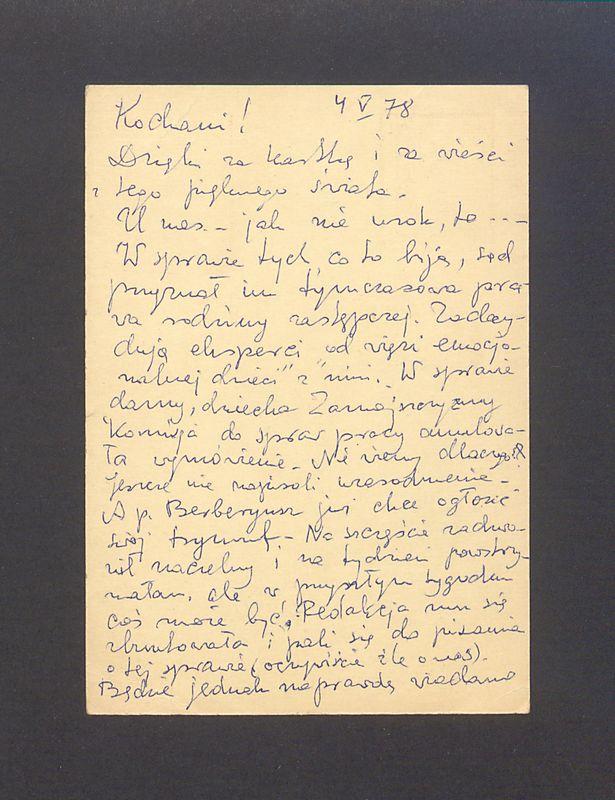 4 V 78
Kochani!
Dzięki za kartkę i za wieści
z tego pięknego świata.
U nas - jak nie urok, to ---
W sprawie tych co to biją, sąd
przyznał im tymczasowa pra-
wa rodziny zastępczej. Zadecy-
dują eksperci od więzi emocjo-
nalnej dzieci "z nimi". W sprawie
damy, dziecka Zamojszczyzny
Komisja do spraw pracy anulowa-
ła wymówienie. Nie wiemy dlaczego
jeszcze nie napisali uzasadnienie -
A p. Berberyusz już chce ogłosić
swój tryumf - Na szczęście zadzwo-
nił naczelny i na tydzień powstrzy-
małam, ale w przyszłym tygodniu
coś może być. Redakcja mu się
zbuntowała i pali się do pisania
o tej sprawie (oczywiście źle o nas).
Będzie jednak naprawdę wiadomo